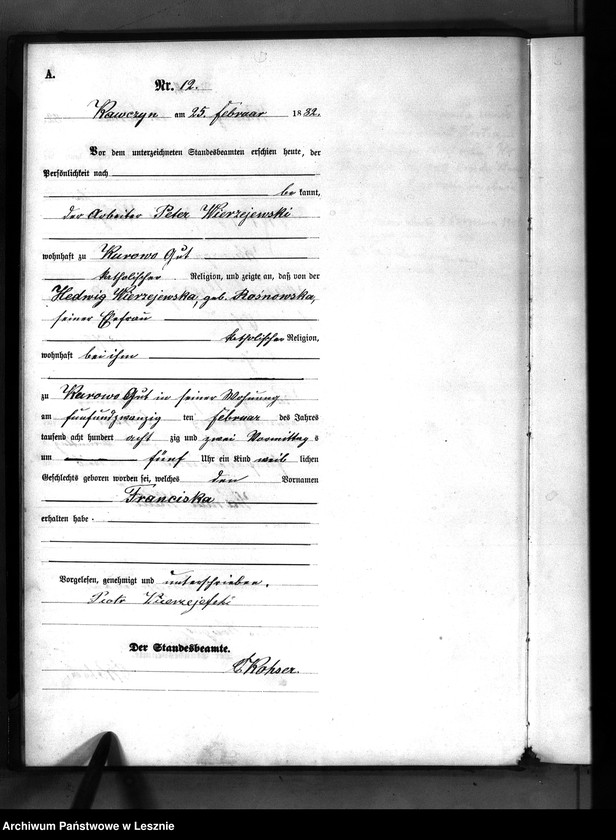 A.
Nr. 12.
Kawczyn am 25. Februar 1882.
Vor dem unterzeichneten Standesbeamten erschien heute, der
Persönlichkeit nach
be kannt,
der Arbeiter Peter Wierzejewski
wohnhaft zu Kurowo Gut
katholischer Religion, und zeigte an, daß von der
Hedwig Wierzejewska, geb. Rośnowska,
seiner Ehefrau
katholischer Religion,
wohnhaft bei ihm
zu Kurowo Gut in seiner Wohnung
am fünfundzwanzig ten Februar des Jahres
tausend acht hundert acht zig und zwei Vormittag s
um fünf Uhr ein Kind weib lichen
Geschlechts geboren worden sei, welches den Vornamen
Franciska
erhalten habe.
Vorgelesen, genehmigt und unterschrieben.
Piotr Wierzejefski
Der Standesbeamte.
Kohser.
Archiwum Państwowe w Lesznie